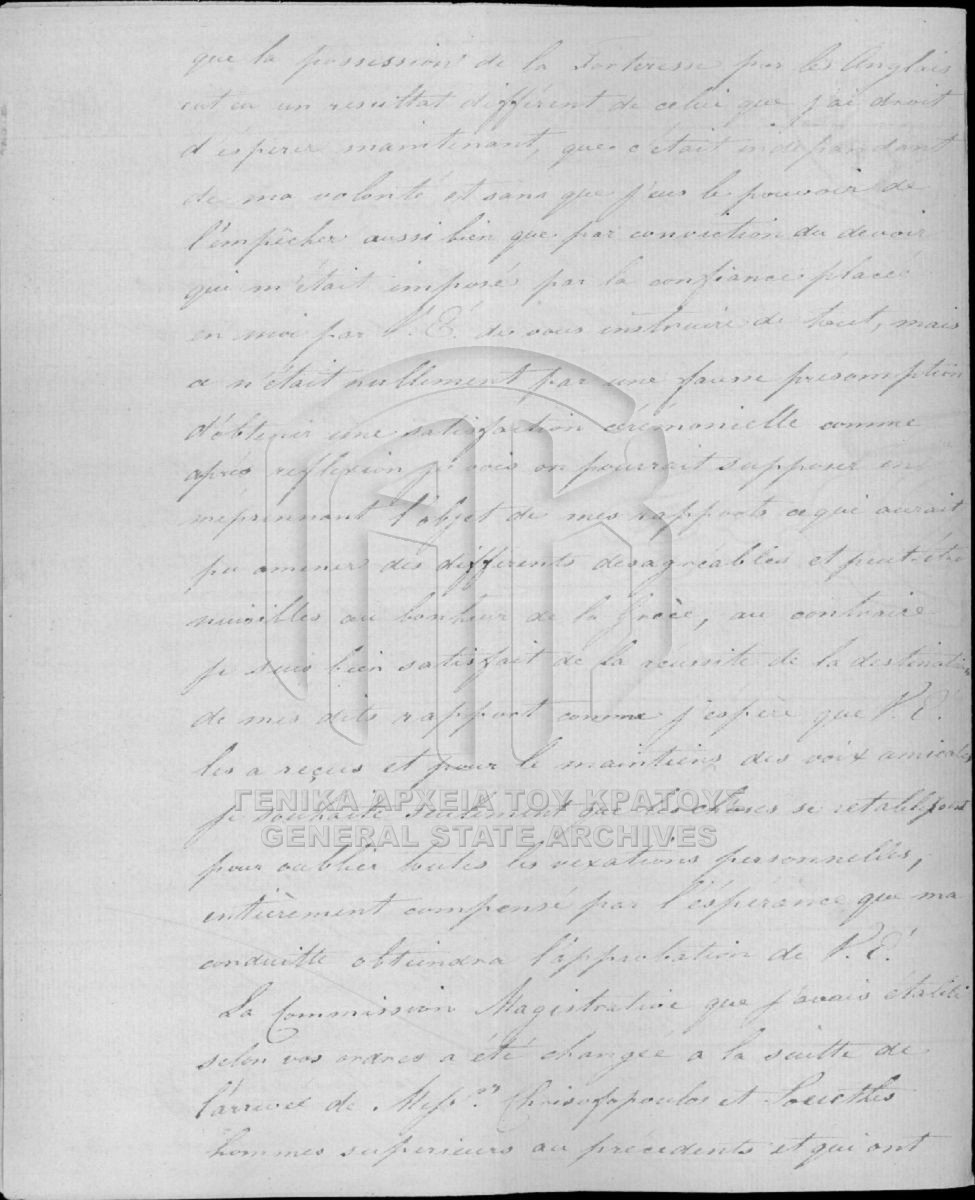 que la possession de la Forteresse par les Anglais
eut eu un resultat différent de celui que j'ai droit
d'éspérer maintenant, que c'était indépandant
de ma volonté et sans que j'eus le pouvoir de
l'émpêcher aussi bien que par conviction du devoir
qui m'était imposés par la confiance placée
en moi par V. É. de vous instruire de tout, mais
ce n'était nullement par une fausse présomption
d'obtenir une satisfaction cérémonielle comme
après reflexion je vois on pourrait supposer en
méprennant l'objet de mes rapports ce qui aurait
pu amener des différents désagréables et peut-être
nuisibles au bonheur de la Grèce, au contraire
je suis bien satisfait de la réussite de la destination
de mes dits rapport comme j'espère que V. E.
les a reçus et pour le maintiens des voix amicales
je souhaite seulement que les choses se retablissent
pour oublier toutes les vexations personnelles,
entièrement compensé par l'éspérance que ma
conduitte obtiendra l'approbation de V. É.
La Commission Magistrative que j'avais établi
selon vos ordres a été changée a la suitte de
l'arrivée de Mess.rs et
hommes superieurs au précédents et qui ont
ΓΕΝΙΚΑ ΑΡΧΕΙΑ ΤΟΥ ΚΡΑΤΟΥΣ
GENERAL STATE ARCHIVES